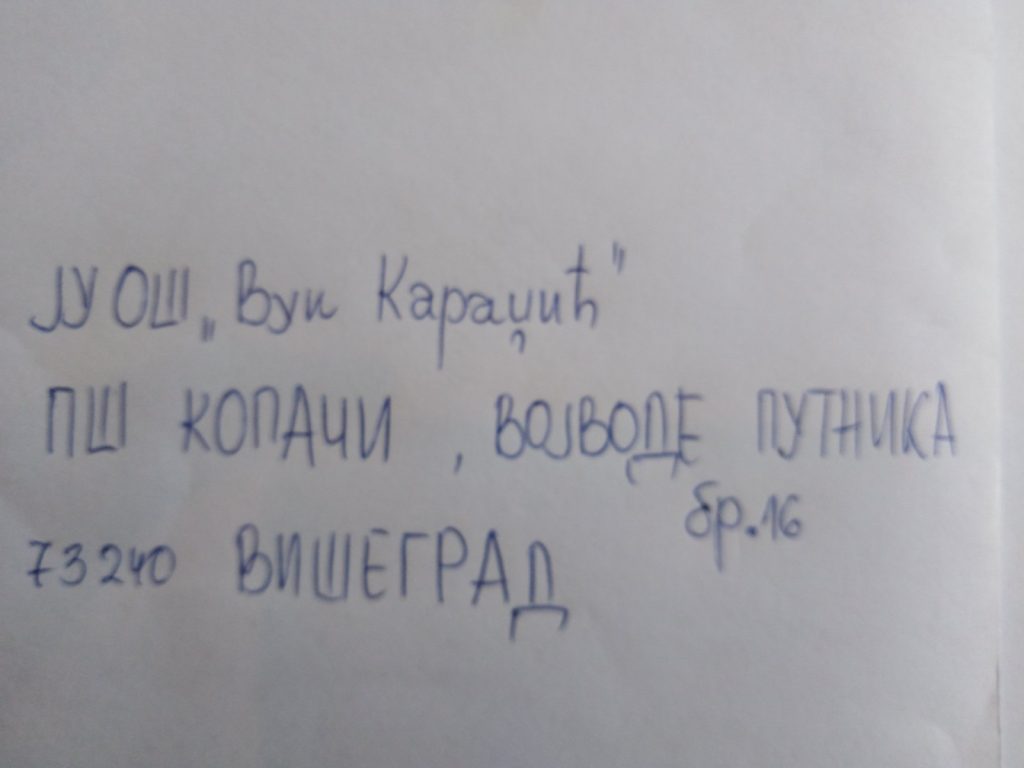 ЈУ ОШ „Вук Караџић"
ПШ КОПАЧИ, ВОЈВОДЕ ПУТНИКА
бр.16
73240 ВИШЕГРАД